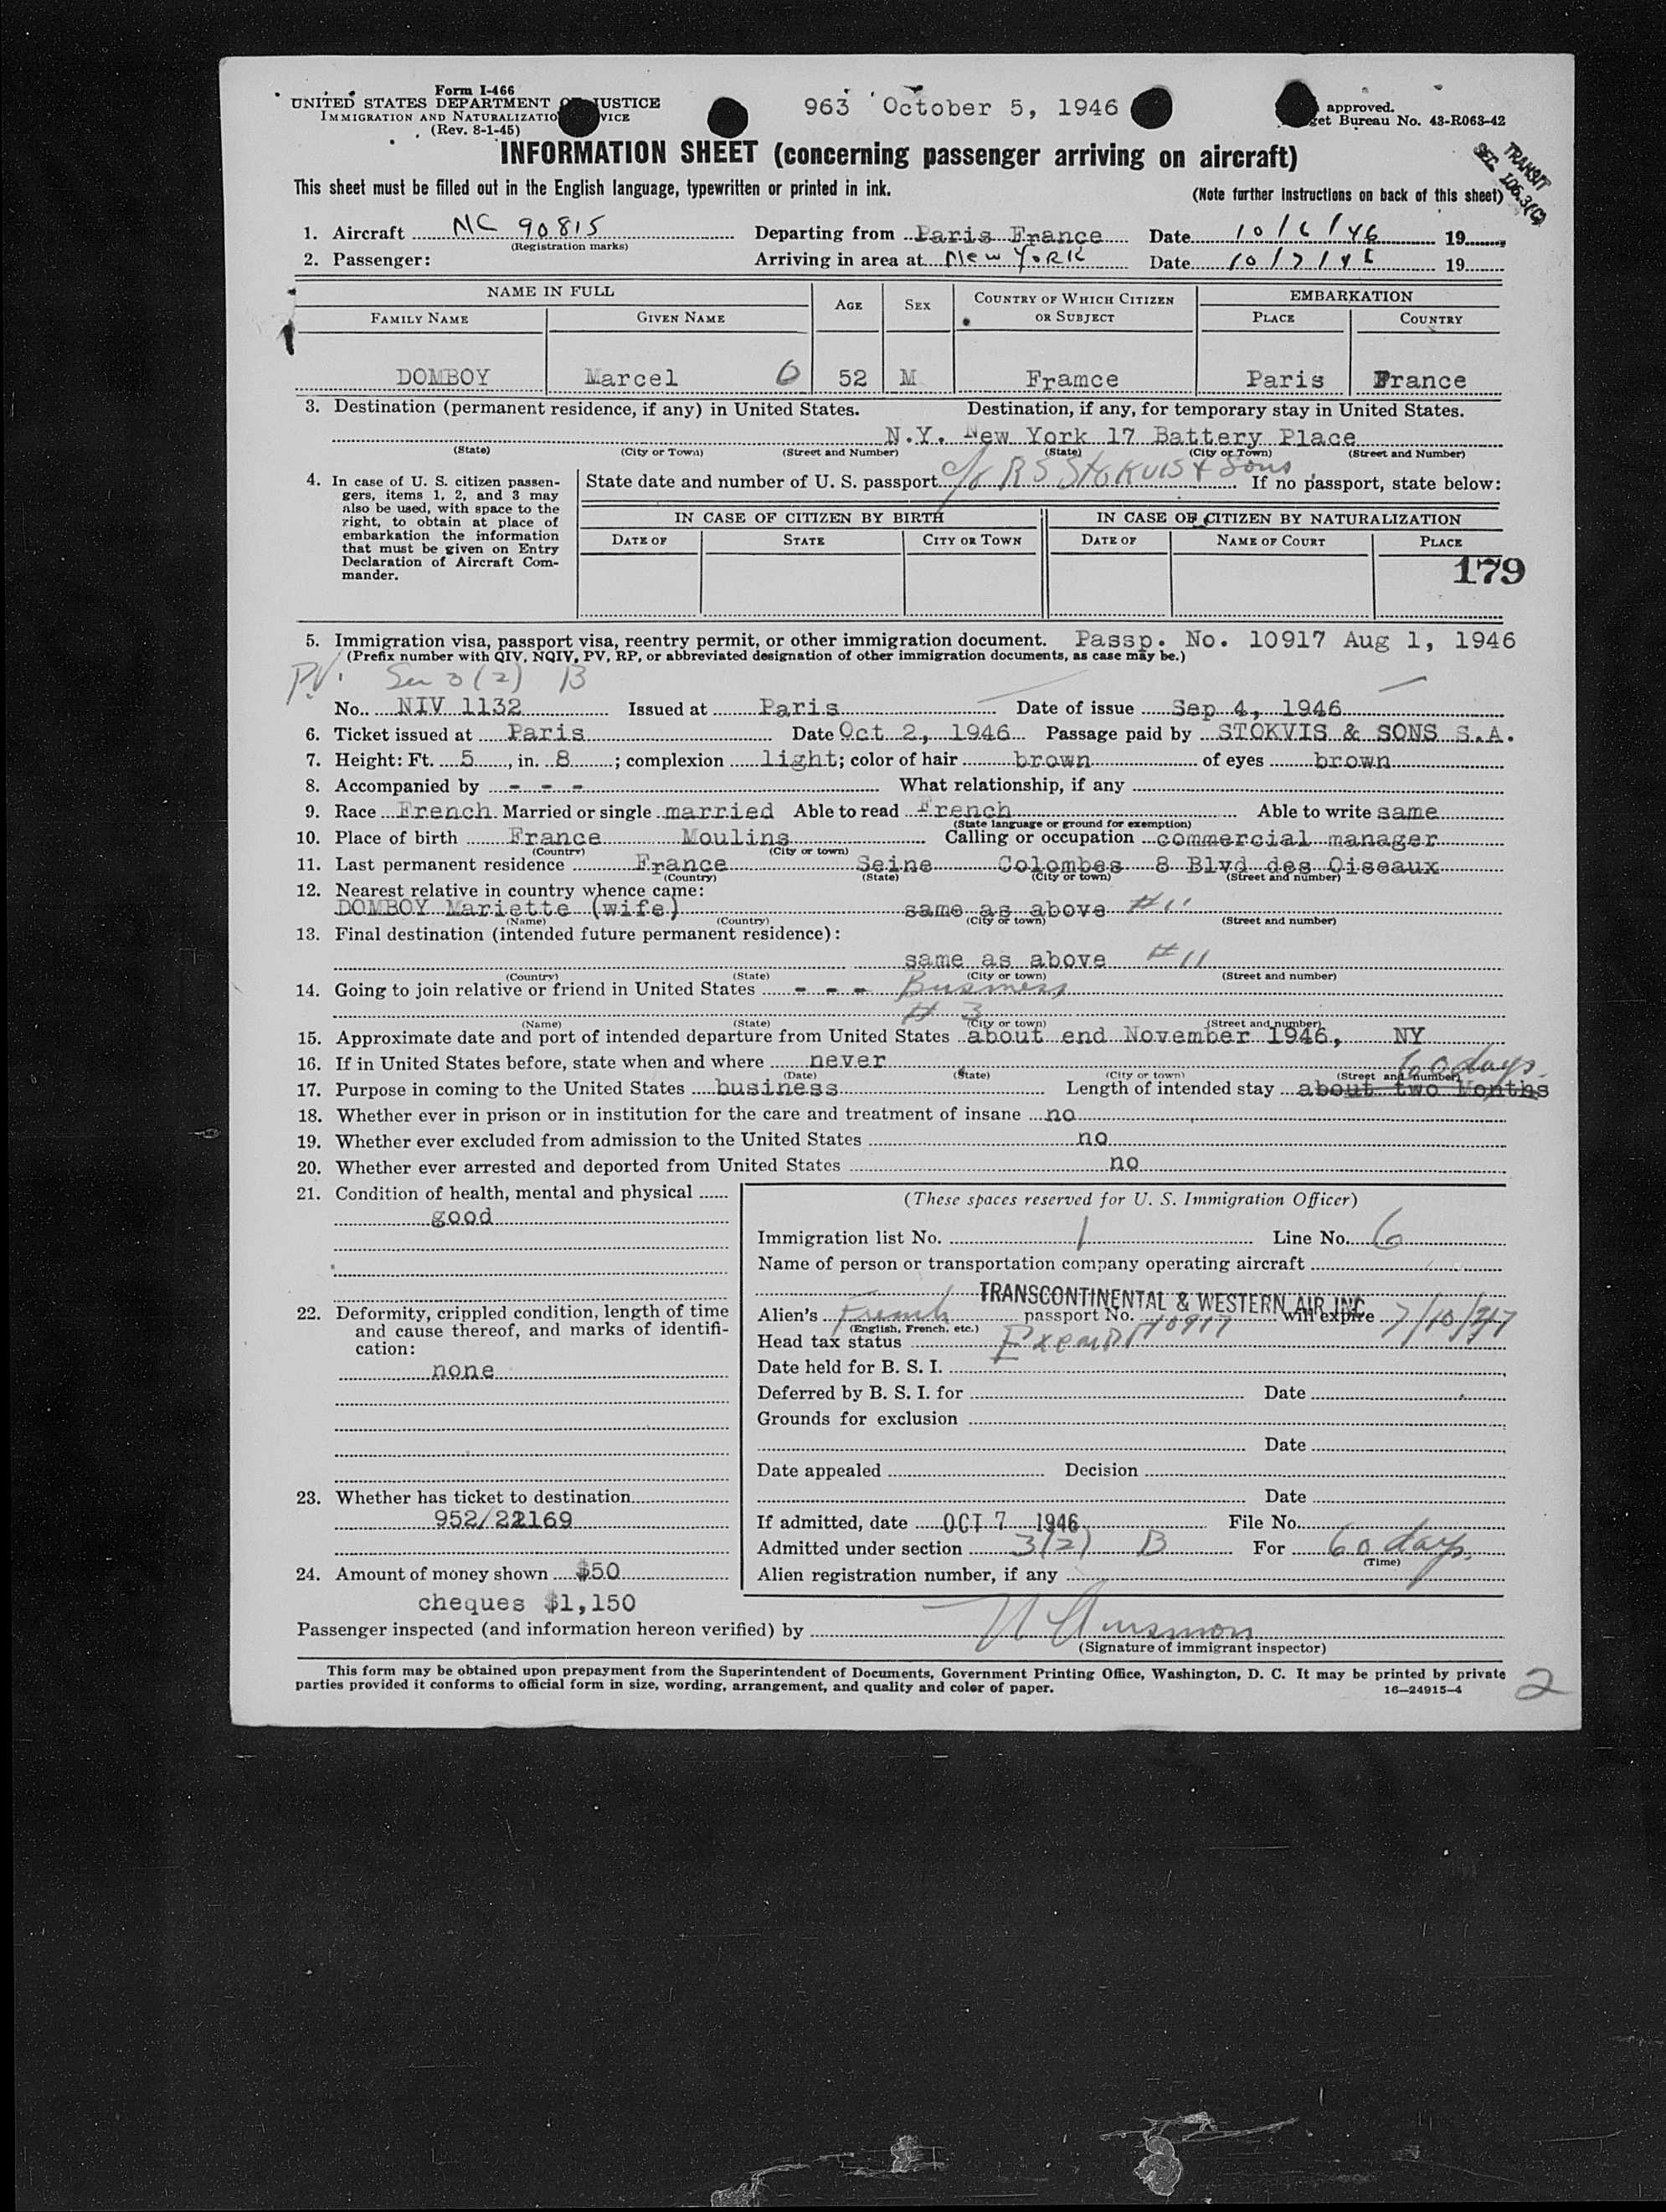 Form I-466
UNITED STATES DEPARTMENT OF JUSTICE
IMMIGRATION AND NATURALIZATIO VICE
(Rev. 8-1-45)
963 October 5, 1946
approved.
get Bureau No. 43-R063-42
TRANSIT
SEC. 106.3(C)
INFORMATION SHEET (concerning passenger arriving on aircraft)
This sheet must be filled out in the English language, typewritten or printed in ink. (Note further instructions on back of this sheet)
1. Aircraft NC 90815 Departing from Paris France Date 10/6/46 19
(Registration marks)
2. Passenger: Arriving in area at New York Date 10/7/46 19
NAME IN FULL AGE SEX COUNTRY OF WHICH CITIZEN OR SUBJECT EMBARKATION
FAMILY NAME GIVEN NAME PLACE COUNTRY
DOMBOY Marcel 6 52 M Framce Paris France
3. Destination (permanent residence, if any) in United States. Destination, if any, for temporary stay in United States.
N.Y. New York 17 Battery Place
(State) (City or Town) (Street and Number) (State) (City or Town) (Street and Number)
4. In case of U. S. citizen passengers, items 1, 2, and 3 may also be used, with space to the right, to obtain at place of embarkation the information that must be given on Entry Declaration of Aircraft Commander.
State date and number of U. S. passport c/o RS Stokvis & Sons If no passport, state below:
IN CASE OF CITIZEN BY BIRTH IN CASE OF CITIZEN BY NATURALIZATION
DATE OF STATE CITY OR TOWN DATE OF NAME OF COURT PLACE
179
5. Immigration visa, passport visa, reentry permit, or other immigration document. Passp. No. 10917 Aug 1, 1946
(Prefix number with QIV, NQIV, PV, RP, or abbreviated designation of other immigration documents, as case may be.)
P.V. Sec 3(2) B
No. NIV 1132 Issued at Paris Date of issue Sep 4, 1946
6. Ticket issued at Paris Date Oct 2, 1946 Passage paid by STOKVIS & SONS S.A.
7. Height: Ft. 5, in. 8; complexion light; color of hair brown of eyes brown
8. Accompanied by - - - What relationship, if any
9. Race French Married or single married Able to read French Able to write same
(State language or ground for exemption)
10. Place of birth France Moulins Calling or occupation commercial manager
(Country) (City or town)
11. Last permanent residence France Seine Colombes 8 Blvd des Oiseaux
(Country) (State) (City or town) (Street and number)
12. Nearest relative in country whence came:
DOMBOY Mariette (wife) same as above #11
(Name) (Country) (City or town) (Street and number)
13. Final destination (intended future permanent residence):
same as above #11
(Country) (State) (City or town) (Street and number)
14. Going to join relative or friend in United States - - - Business
# 3
(Name) (State) (City or town) (Street and number)
15. Approximate date and port of intended departure from United States about end November 1946, NY
16. If in United States before, state when and where never
(Date) (State) (City or town) (Street and number)
60 days.
17. Purpose in coming to the United States business Length of intended stay about two Months
18. Whether ever in prison or in institution for the care and treatment of insane no
19. Whether ever excluded from admission to the United States no
20. Whether ever arrested and deported from United States no
21. Condition of health, mental and physical
good
22. Deformity, crippled condition, length of time and cause thereof, and marks of identification:
none
23. Whether has ticket to destination
952/22169
24. Amount of money shown $50
cheques $1,150
(These spaces reserved for U. S. Immigration Officer)
Immigration list No. 1 Line No. 6
Name of person or transportation company operating aircraft
TRANSCONTINENTAL & WESTERN AIR INC.
Alien's French passport No. 10917 will expire 7/10/47
(English, French, etc.)
Head tax status Exempt
Date held for B. S. I.
Deferred by B. S. I. for Date
Grounds for exclusion
Date
Date appealed Decision
Date
If admitted, date OCT 7 1946 File No.
Admitted under section 3(2) B For 60 days.
(Time)
Alien registration number, if any
Passenger inspected (and information hereon verified) by
(Signature of immigrant inspector)
This form may be obtained upon prepayment from the Superintendent of Documents, Government Printing Office, Washington, D. C. It may be printed by private
parties provided it conforms to official form in size, wording, arrangement, and quality and color of paper. 16—24915-4
2